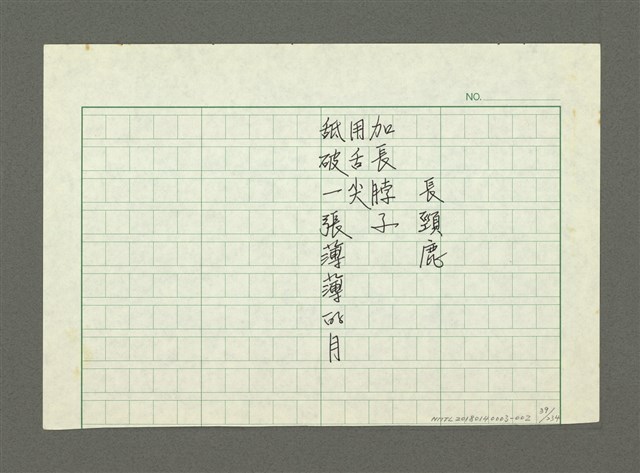 NO.
長頸鹿
加長脖子
用舌尖
舐破一張薄薄的月
NMTL20180140003-002
39/234